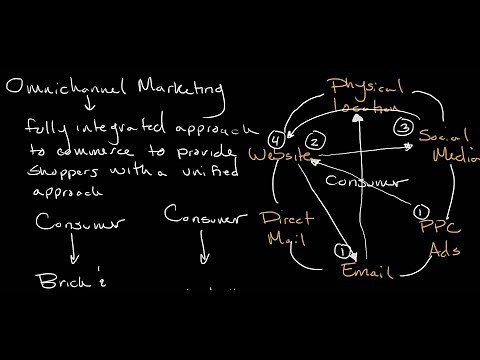 Omnichannel Marketing
fully integrated approach
to commerce to provide
shoppers with a unified
approach
Consumer
Consumer
Brick &
Physical
Location
3
Social
Media
4
2
Website
Consumer
1
PPC
Ads
Direct
Mail
1
Email